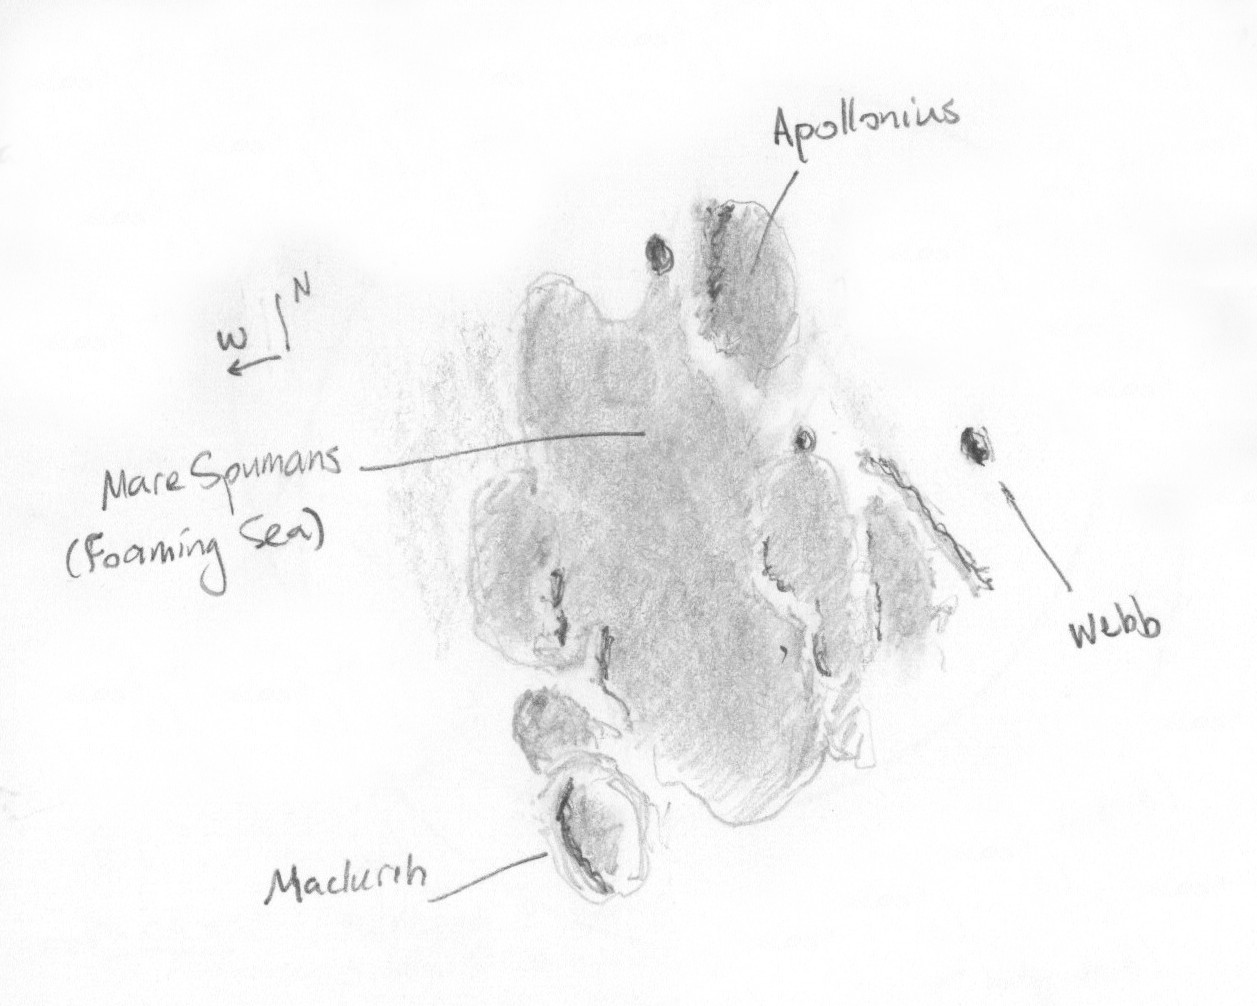 Apollonius
N
W
Mare Spumans
(Foaming Sea)
Webb
Maclurin